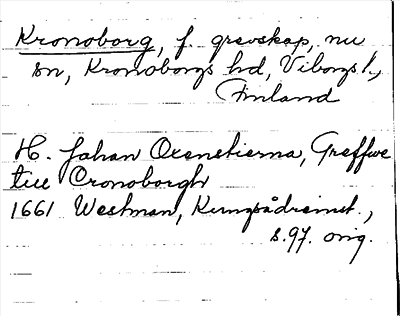 Kronoborg, f. grevskap, nu
sn, Kronoborgs hd, Viborgs l.,
Finland
H. Johan Oxenstierna, Greffwe
till Cronoborgh
1661 Westman, Kungsådreinst.,
s. 97. orig.